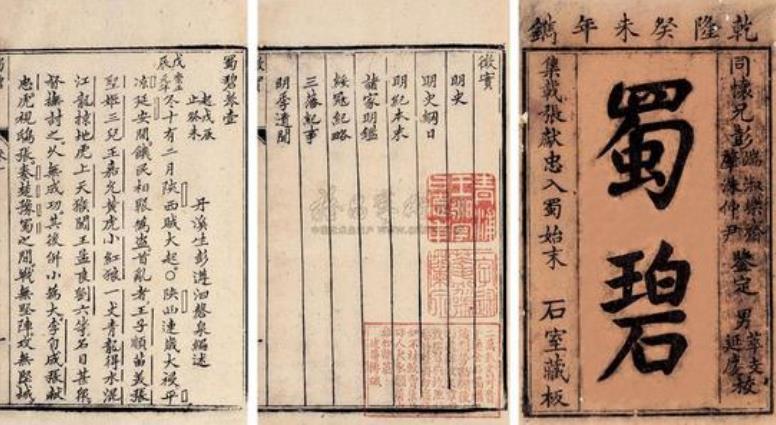 乾隆癸未年鐫
同懷兄彭端淑樂齋
肇洙仲尹
鑒定
男
延慶
校
蜀碧
集載張獻忠入蜀始末
石室藏板
徵實
明史
明史綱日
明紀本末
諸家明鑑
綏冦紀略
三藩紀事
明季遺聞
蜀碧卷壹
起戊辰
止癸未
丹溪生彭遵泗磬泉編述
戊辰
冬十有二月陝西賊大起○陝西連歲大祲平
凉延安間饑民和聚為盜首亂者王子順苗美張
聖姬三兒王嘉允黃虎小紅狼一丈青龍得水混
江龍掠地虎上天猴闖王孟良劉六等名目甚衆
督撫討之久無成功其後併小為大李自成張獻
忠虎視鴟張秦楚豫蜀之間戰無堅陣攻無堅城